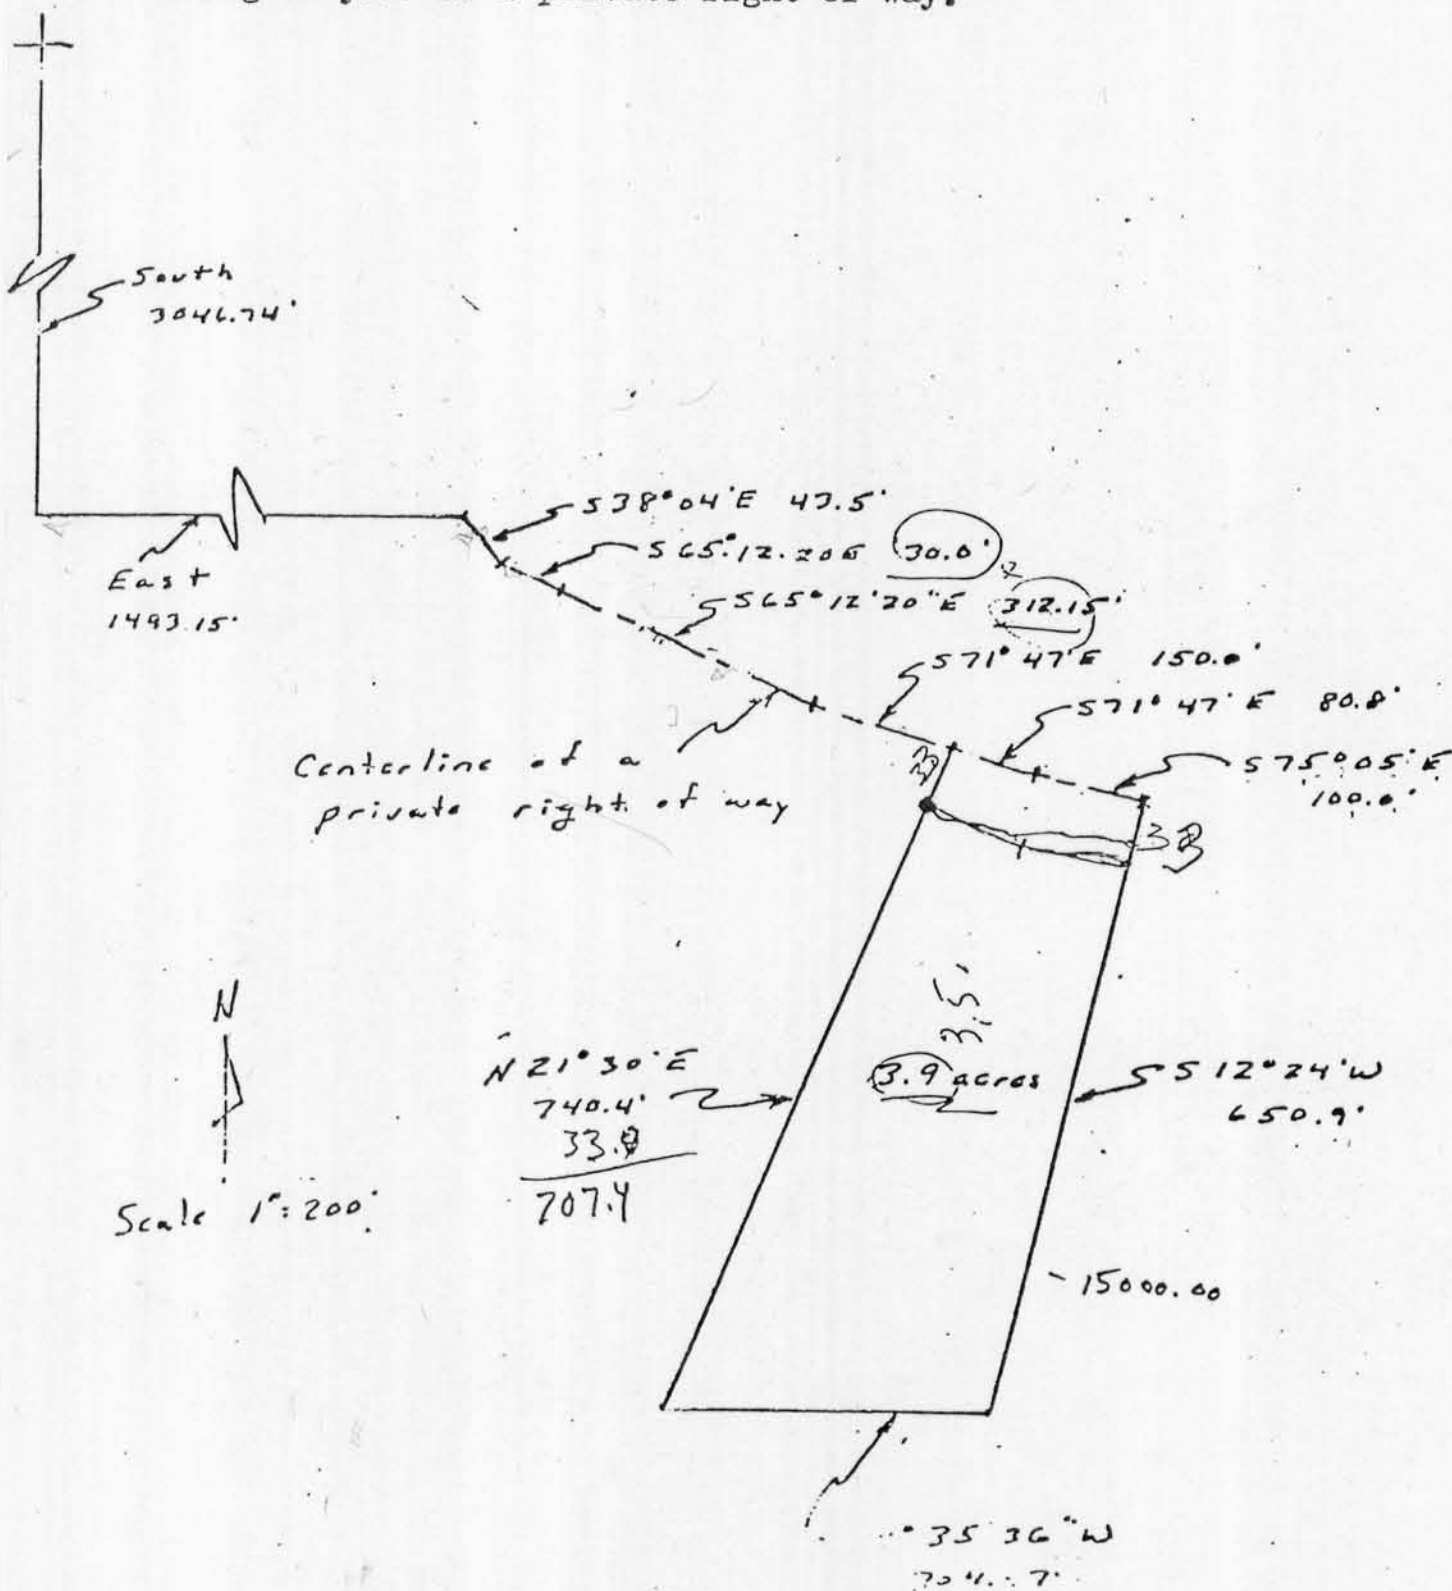 private right of way.
South
3046.74'
East
1493.15'
S38°04'E 43.5'
S65°12.20E 30.0'
S65°12'20"E 312.15'
S71°47'E 150.0'
S71°47'E 80.8'
S75°05'E
100.0'
Centerline of a
private right of way
33
33
N
Scale 1"=200'
N21°30'E
740.4'
33.0
707.4
3.5
3.9 acres
S12°24'W
650.9'
- 15000.00
35 36"W